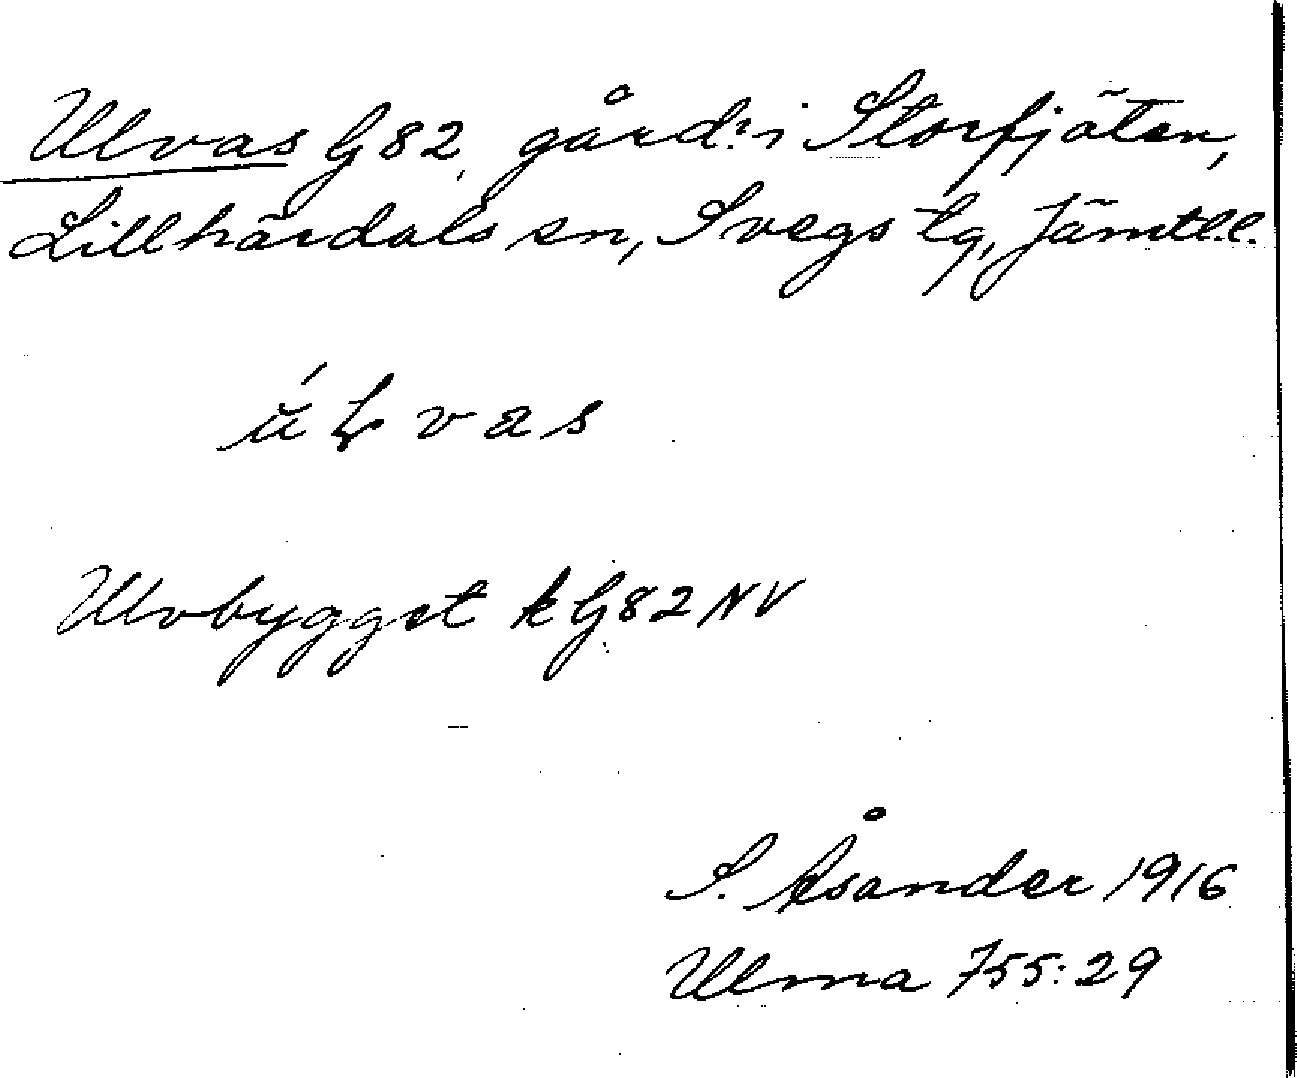 Ulvas G82, gård: i Storfjäten,
Lillhärdals sn, Svegs tg, Jämtl.l.
Ulvbygget k G82 NV
S. Åsander 1916
Ulma 755:29